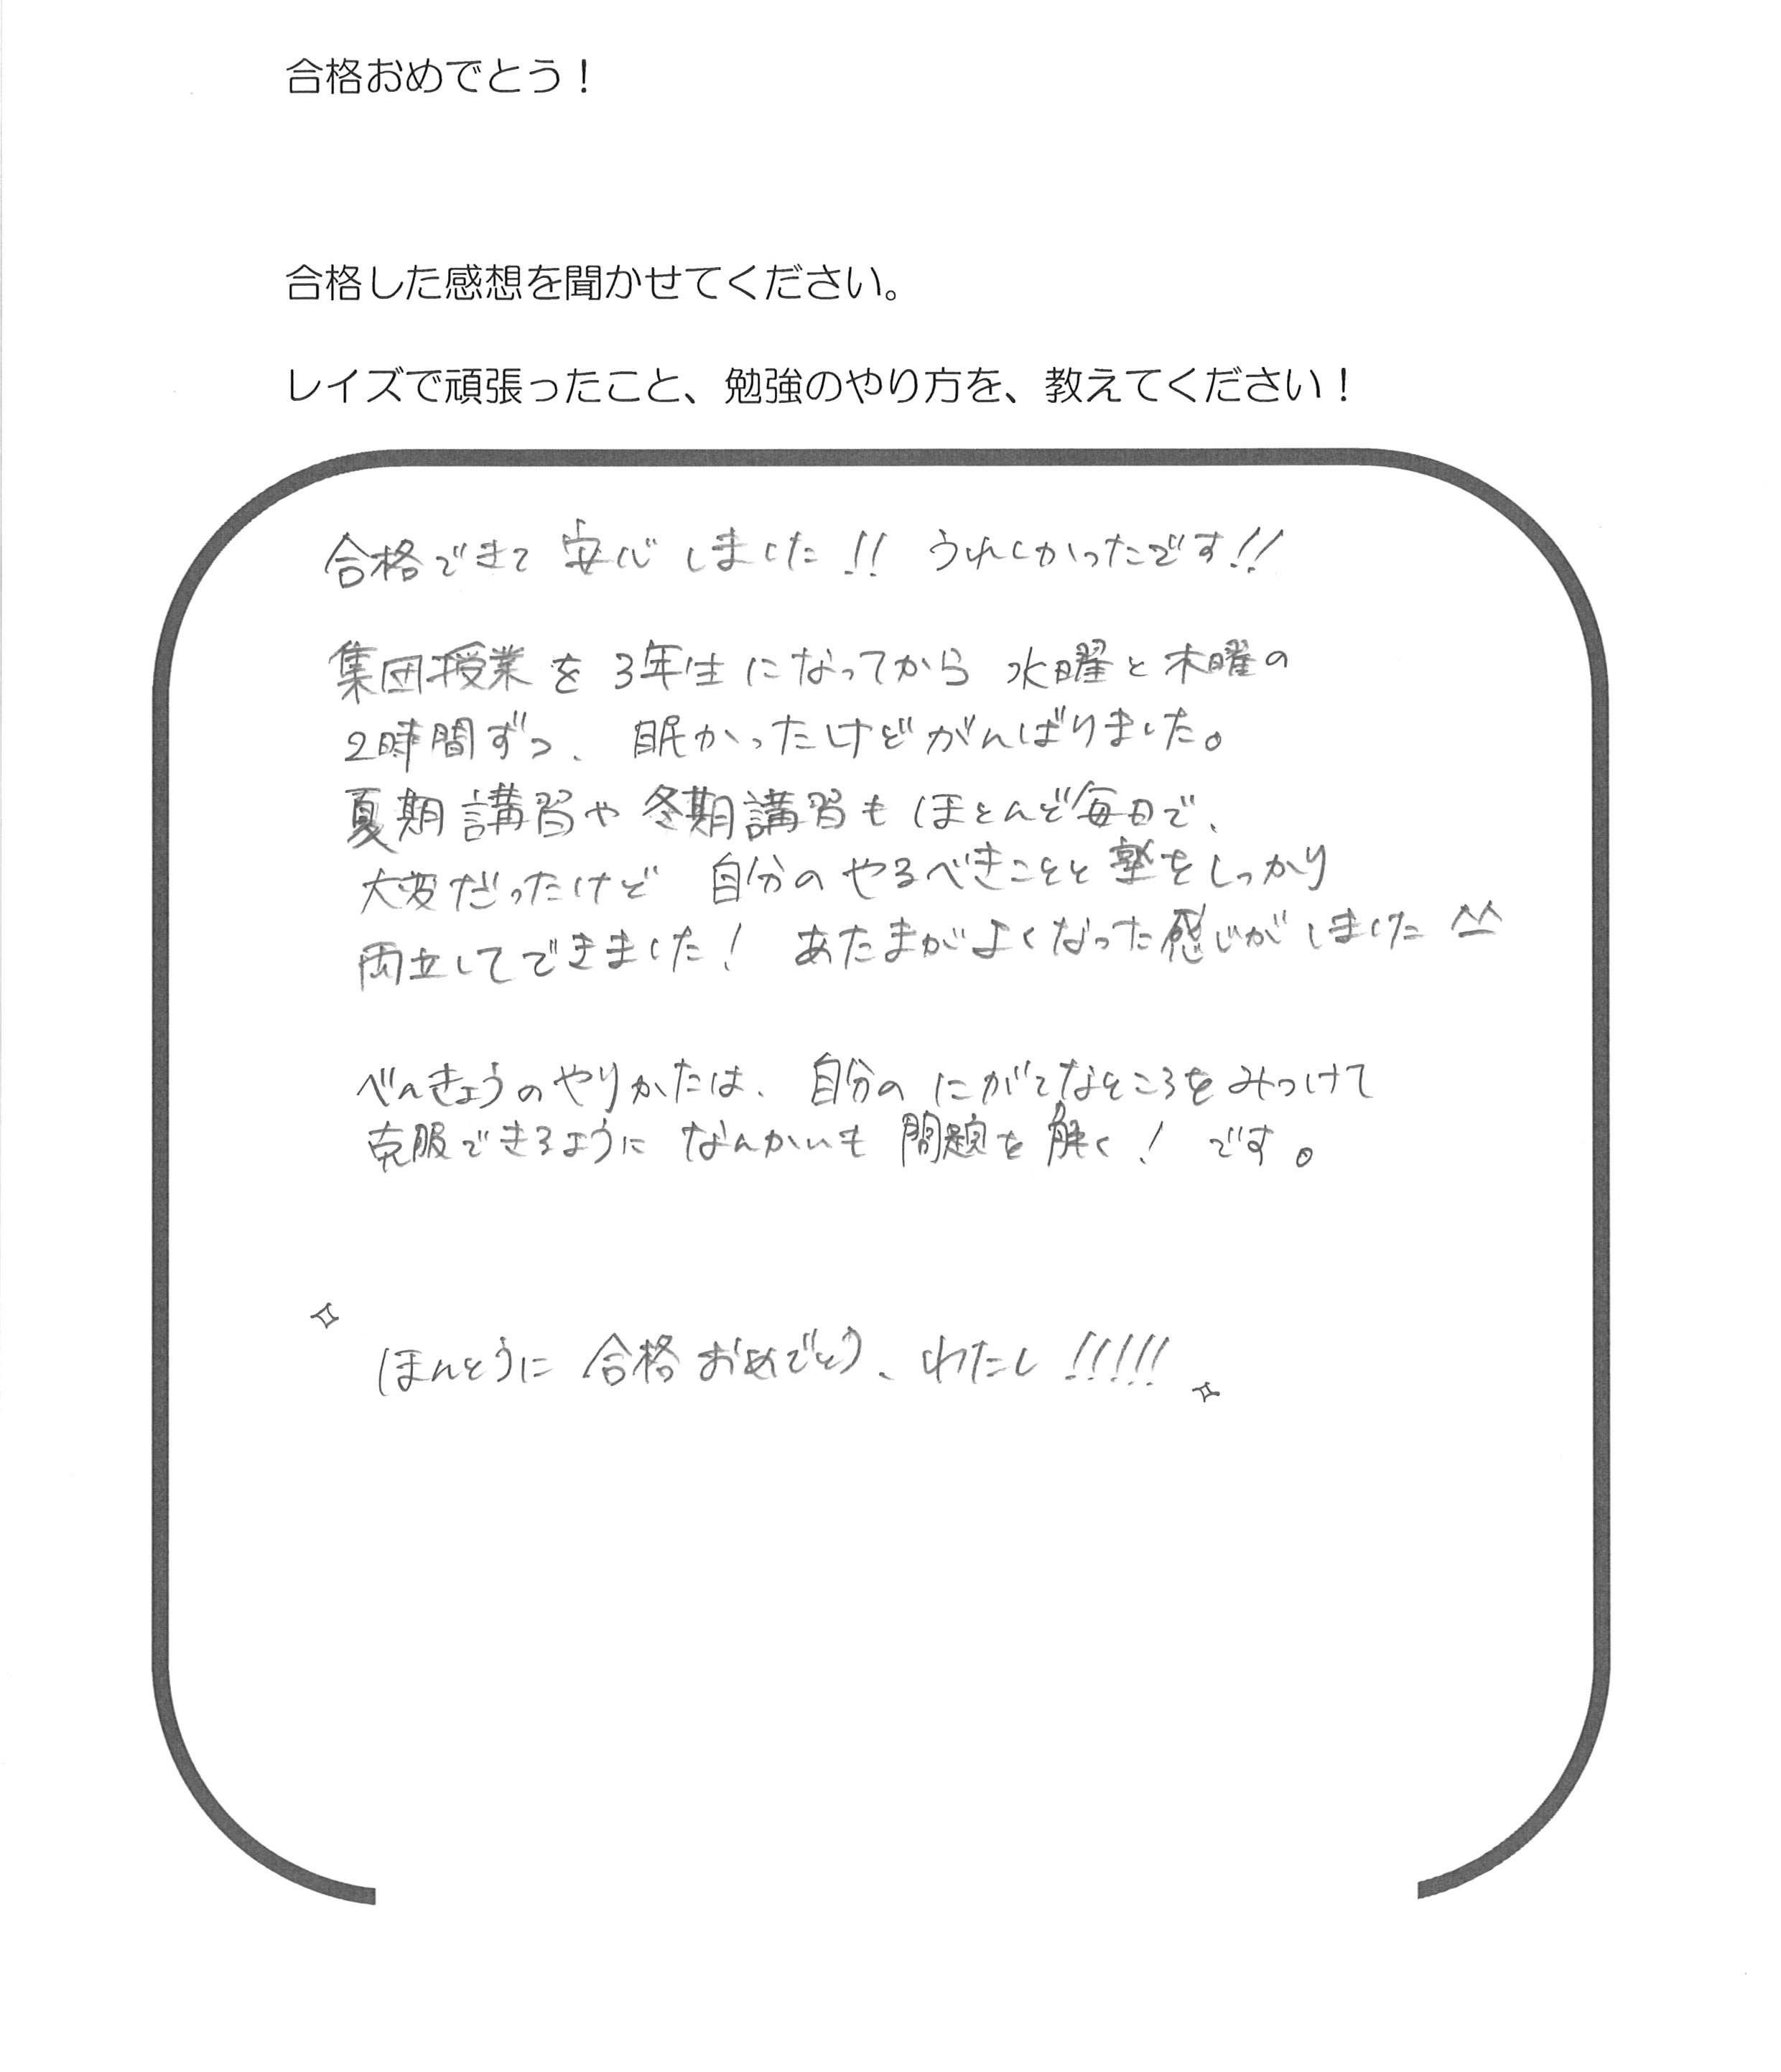 合格おめでとう！
合格した感想を聞かせてください。
レイズで頑張ったこと、勉強のやり方を、教えてください！
合格できて 安心しました!! うれしかったです!!
集団授業を 3年生になってから 水曜と木曜の
2時間ずつ、眠かったけどがんばりました。
夏期講習や冬期講習もほとんど毎日で、
大変だったけど 自分のやるべきことと塾をしっかり
両立してできました! あたまがよくなった感じがしました ^^
べんきょうのやりかたは、自分の にがてなところをみつけて
克服できるように なんかいも 問題を解く! です。
ほんとうに 合格おめでとう、わたし!!!!!